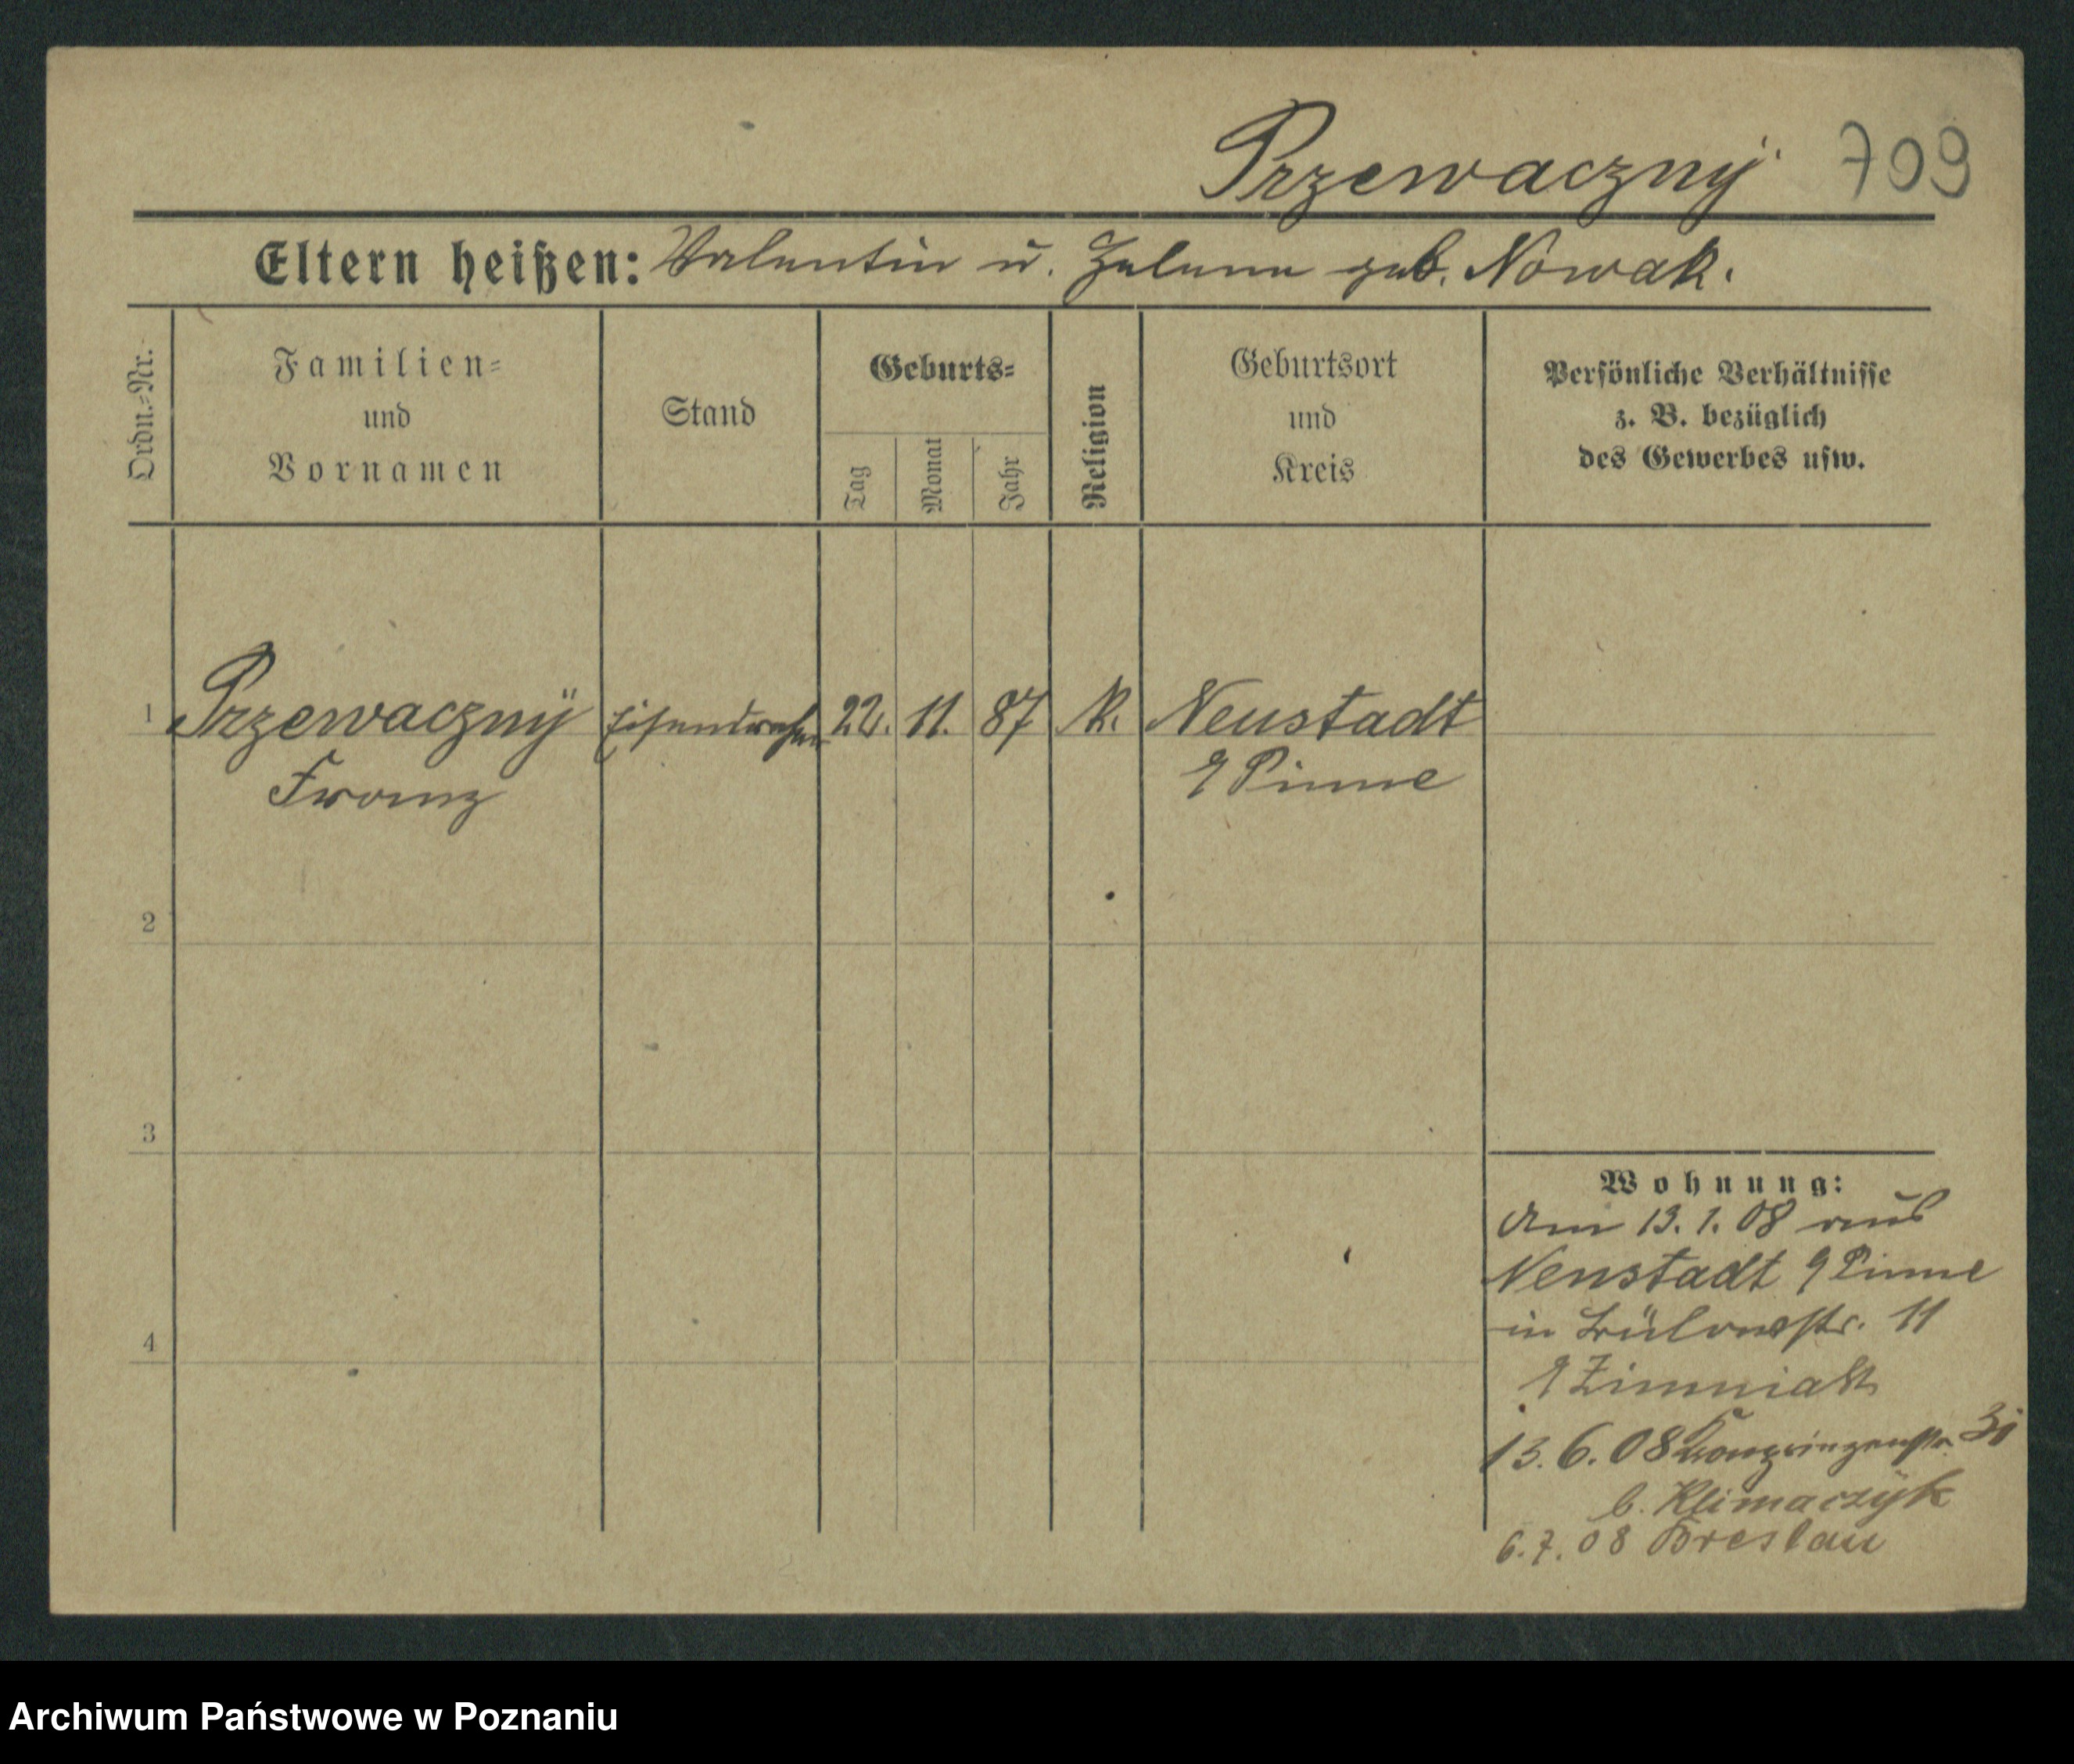 Przewaczny 709
Eltern heißen: Valentin u. Helene geb. Nowak.
Ordn.-Nr.
Familien-
und
Vornamen
Stand
Geburts-
Tag
Monat
Jahr
Religion
Geburtsort
und
Kreis
Persönliche Verhältnisse
z. B. bezüglich
des Gewerbes usw.
1 Przewaczny Eisendreher 22. 11. 87 k. Neustadt
Franz
Pinne
2
3
4
Wohnung:
Am 13. 1. 08 aus
Neustadt Pinne
in Bülowstr. 11
13. 6. 08 Kronprinzenstr.
b. Klimaczyk
6. 7. 08 Breslau
Archiwum Państwowe w Poznaniu